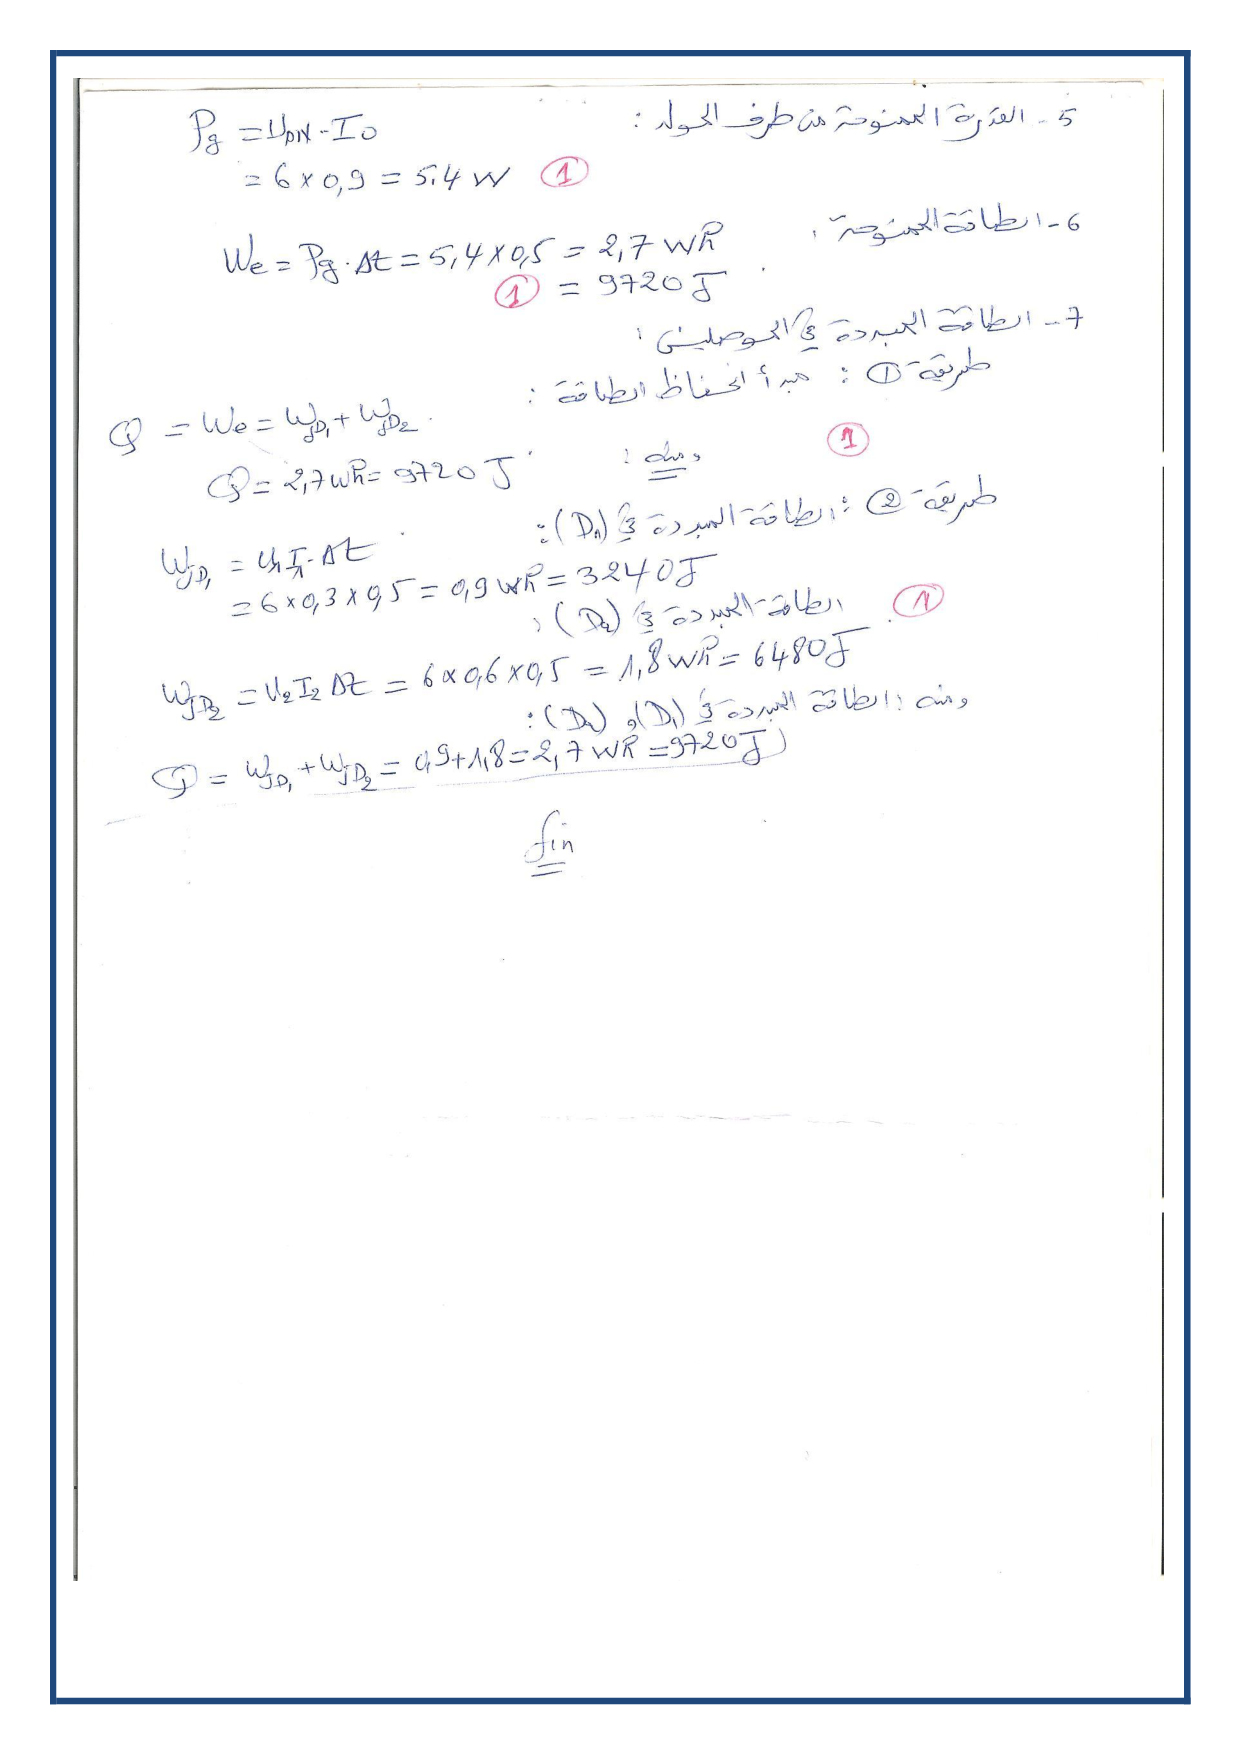 5 - القدرة الممنوحة من طرف المولد :
Pg = UPN · I0
= 6 × 0,9 = 5.4 W ①
6 - الطاقة الممنوحة :
We = Pg · Δt = 5,4 × 0,5 = 2,7 Wh
① = 9720 J
7 - الطاقة المبددة في الموصلين :
طريقة ① : مبدأ انحفاظ الطاقة :
Q = We = WJD1 + WJD2
ومنه : ①
Q = 2,7 Wh = 9720 J
طريقة ② : الطاقة المبددة في (D1) :
WJD1 = U1 I1 · Δt
= 6 × 0,3 × 0,5 = 0,9 Wh = 3240 J
الطاقة المبددة في (D2) : ①
WJD2 = U2 I2 Δt = 6 × 0,6 × 0,5 = 1,8 Wh = 6480 J
ومنه : الطاقة المبددة في (D1) و (D2) :
Q = WJD1 + WJD2 = 0,9 + 1,8 = 2,7 Wh = 9720 J
fin